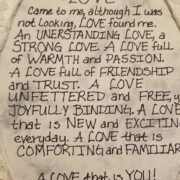 LOVE
Came to me, although I was
not Looking, LOVE found me.
An UNERSTANDING LOVE, a
STRONG LOVE. A LOVE full
of WARMTH and PASSION.
A LOVE full of FRIENDSHIP
and TRUST. A LOVE
UNFETTERED and FREE, y
JOYFULLY BINDING. A LOVE
that is NEW and EXCITIN
everyday. A LOVE that is
COMFORTING and FAMILIAR
A LOVE that is YOU!